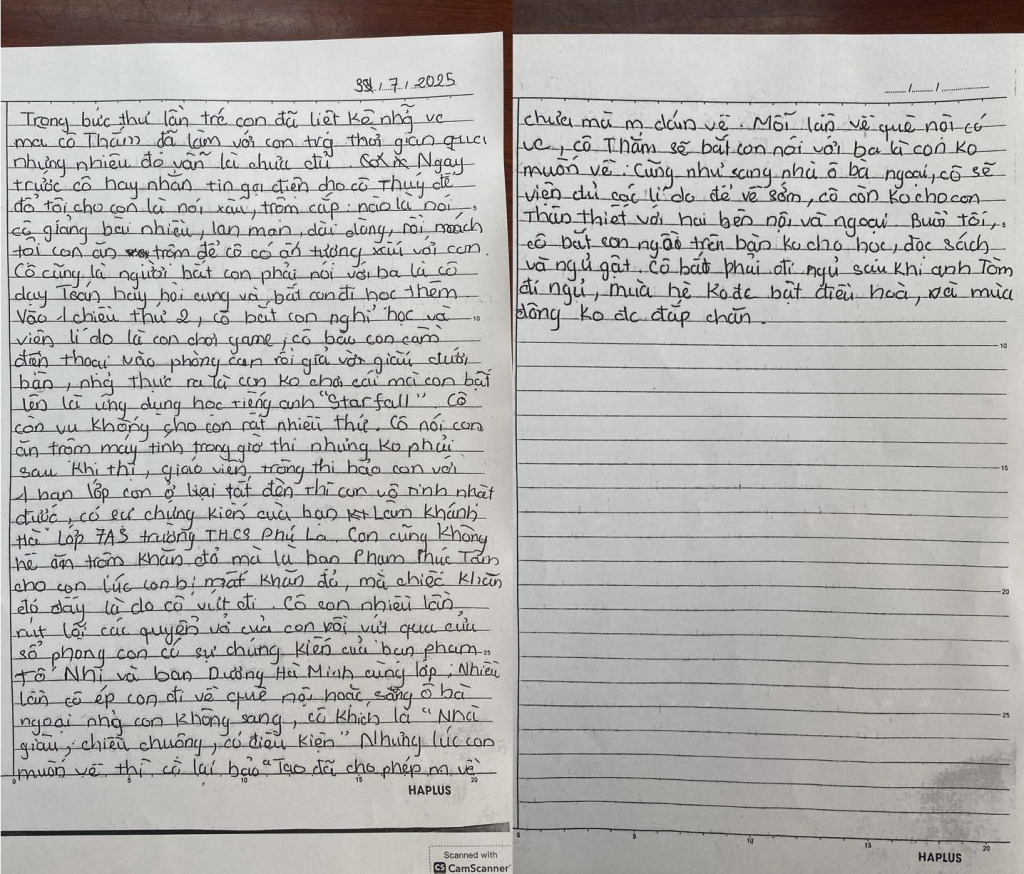 31/7/2025
Trong bức thư lần trc con đã liệt kê nhg vc
mà cô Thắm đã làm với con trg thời gian qua
nhưng nhiêu đó vẫn là chưa đủ. Ngay
trước cô hay nhắn tin gọi điện cho cô Thuý để
đổ tội cho con là nói xấu, trộm cắp: nào là nói
cô giảng bài nhiều, lan man, dài dòng, rồi mách
tội con ăn trộm để cô có ấn tượng xấu với con.
Cô cũng là người bắt con phải nói với ba là cô
dạy Toán hay hỏi cung và bắt con đi học thêm
Vào 1 chiều thứ 2, cô bắt con nghỉ học và
viện lí do là con chơi game, cô bảo con cầm
điện thoại vào phòng con rồi giả vờ giấu dưới
bàn, nhg thực ra là con ko chơi cái mà con bật
lên là ứng dụng học tiếng anh "Starfall". Cô
còn vu khống cho con rất nhiều thứ. Cô nói con
ăn trộm máy tính trong giờ thi nhưng ko phải
sau khi thi, giáo viên trông thi bảo con với
1 bạn lớp con ở lại tắt đèn thì con vô tình nhặt
được, có sự chứng kiến của bạn Lâm Khánh
Hà lớp 7A5 trường THCS Phú La. Con cũng không
hề ăn trộm khăn đỏ mà là bạn Phạm Phúc Tâm
cho con lúc con bị mất khăn đỏ, mà chiếc khăn
đỏ đấy là do cô vứt đi. Cô còn nhiều lần
rút lõi các quyển vở của con rồi vứt qua cửa
sổ phòng con có sự chứng kiến của bạn Phạm
Tô Nhi và bạn Dương Hà Minh cùng lớp. Nhiều
lần cô ép con đi về quê nội hoặc sang ô bà
ngoại nhg con không sang, cô khích là "Nhà
giàu, chiều chuộng, có điều kiện" Nhưng lúc con
muốn về thì cô lại bảo "Tao đã cho phép m về
0 5 10 15 20
HAPLUS
Scanned with
CS CamScanner
...../...../.....
chưa mà m dám về. Mỗi lần về quê nội có
vc, cô Thắm sẽ bắt con nói với ba là con ko
muốn về. Cũng như sang nhà ô bà ngoại, cô sẽ
viện đủ các lí do để về sớm, cô còn ko cho con
thân thiết với hai bên nội và ngoại. Buổi tối,
cô bắt con ngồi trên bàn ko cho học, đọc sách
và ngủ gật. Cô bắt phải đi ngủ sau khi anh Tôm
đi ngủ, mùa hè ko đc bật điều hoà, và mùa
đông ko đc đắp chăn.
10
15
20
25
0 5 10 15 20
HAPLUS